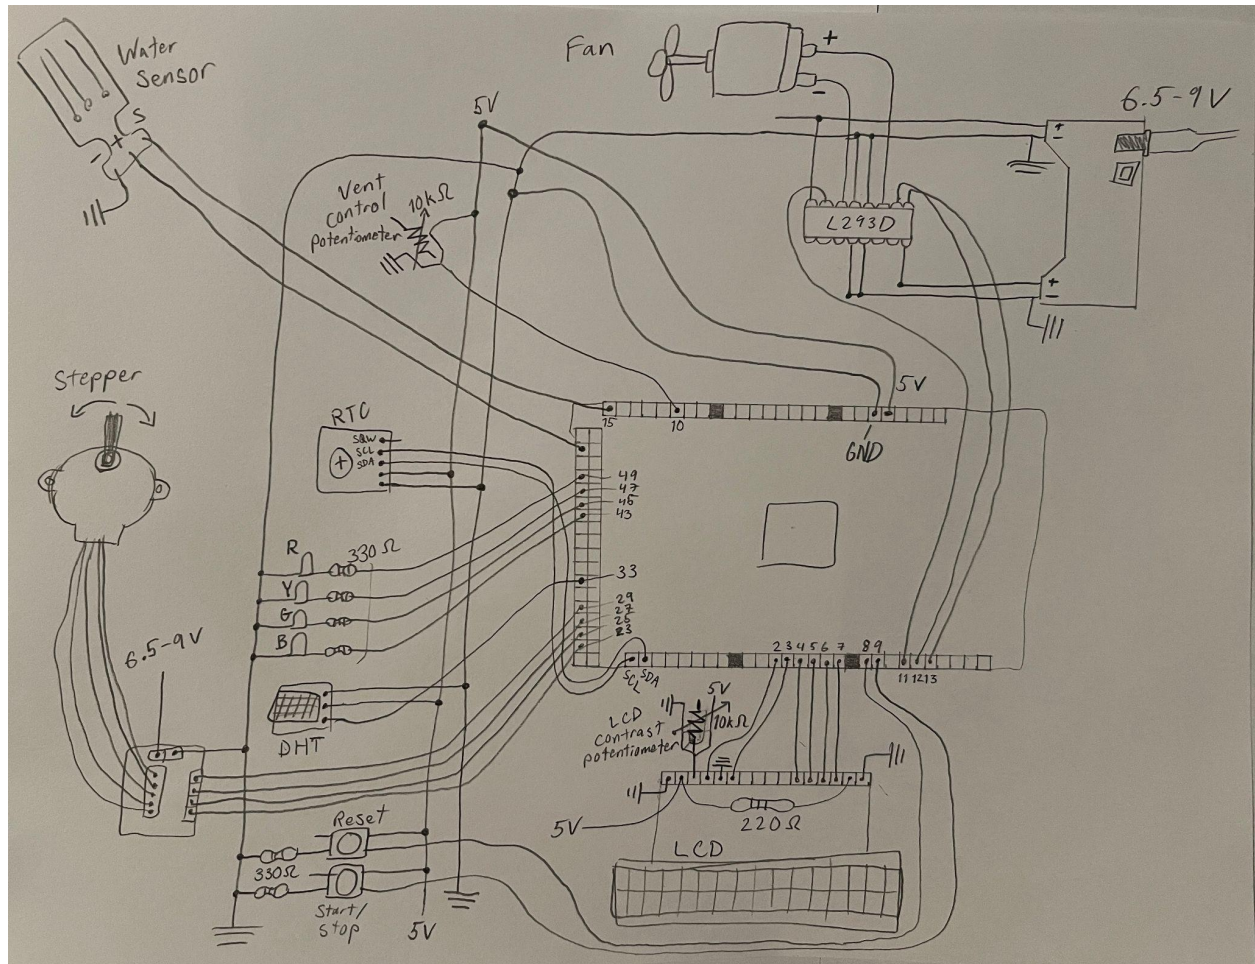 Water
Sensor
S
+
-
Fan
+
-
6.5-9V
5V
+
-
Vent
control
potentiometer
10kΩ
L293D
+
-
Stepper
5V
RTC
SQW
SCL
SDA
+
15
10
GND
49
47
45
43
R
330Ω
Y
G
B
33
29
27
25
23
6.5-9V
DHT
SCL
SDA
2 3 4 5 6 7 8 9
11 12 13
5V
10kΩ
LCD
contrast
potentiometer
5V
220Ω
LCD
Reset
330Ω
Start/
stop
5V